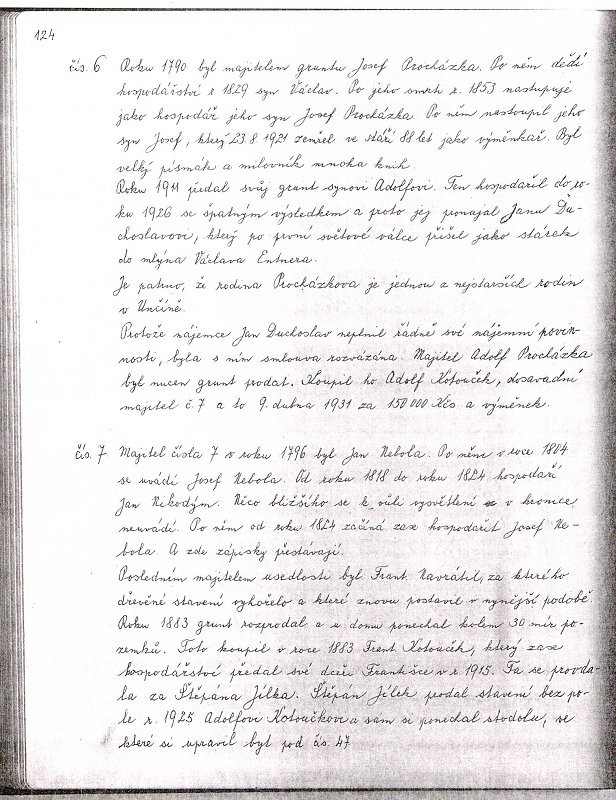 124
čís. 6 Roku 1790 byl majitelem gruntu Josef Procházka. Po něm dědí
hospodářství r 1829 syn Václav. Po jeho smrti r. 1853 nastupuje
jako hospodář jeho syn Josef Procházka Po něm nastoupil jeho
syn Josef, který 23.8 1921 zemřel ve stáří 88 let jako výměnkař. Byl
velký písmák a milovník mnoha knih.
Roku 1911 předal svůj grunt synovi Adolfovi. Ten hospodařil do ro-
ku 1926 se špatným výsledkem a proto jej pronajal Janu Du-
choslavovi, který po první světové válce přišel jako stárek
do mlýna Václava Entnera.
Je patrno, že rodina Procházkova je jednou z nejstarších rodin
v Unčíně.
Protože nájemce Jan Duchoslav neplnil řádně své nájemní povin-
nosti, byla s ním smlouva rozvázána. Majitel Adolf Procházka
byl nucen grunt prodat. Koupil ho Adolf Kotouček, dosavadní
majitel č. 7 a to 9. dubna 1931 za 150 000 Kčs a výměnek.
čís. 7. Majitel čísla 7 v roku 1796 byl Jan Nebola. Po něm v roce 1804
se uvádí Josef Nebola. Od roku 1818 do roku 1824 hospodaří
Jan Nikodým. Něco bližšího se k vůli vysvětlení v kronice
neuvádí. Po něm od roku 1824 začíná zase hospodařit Josef Ne-
bola. A zde zápisky přestávají.
Posledním majitelem usedlosti byl Frant Navrátil, za kterého
dřevěné stavení vyhořelo a které znovu postavil v nynější podobě
Roku 1883 grunt rozprodal a u domu ponechal kolem 30 mír po-
zemků. Toto koupil v roce 1883 Frant Kotouček, který zase
hospodářství předal své dceři Františce v r. 1915. Ta se provda-
la za Štěpána Jílka. Štěpán Jílek prodal stavení bez po-
le r. 1925 Adolfovi Kotoučkovi a sam si ponechal stodolu, ve
které si upravil byt pod čís. 47